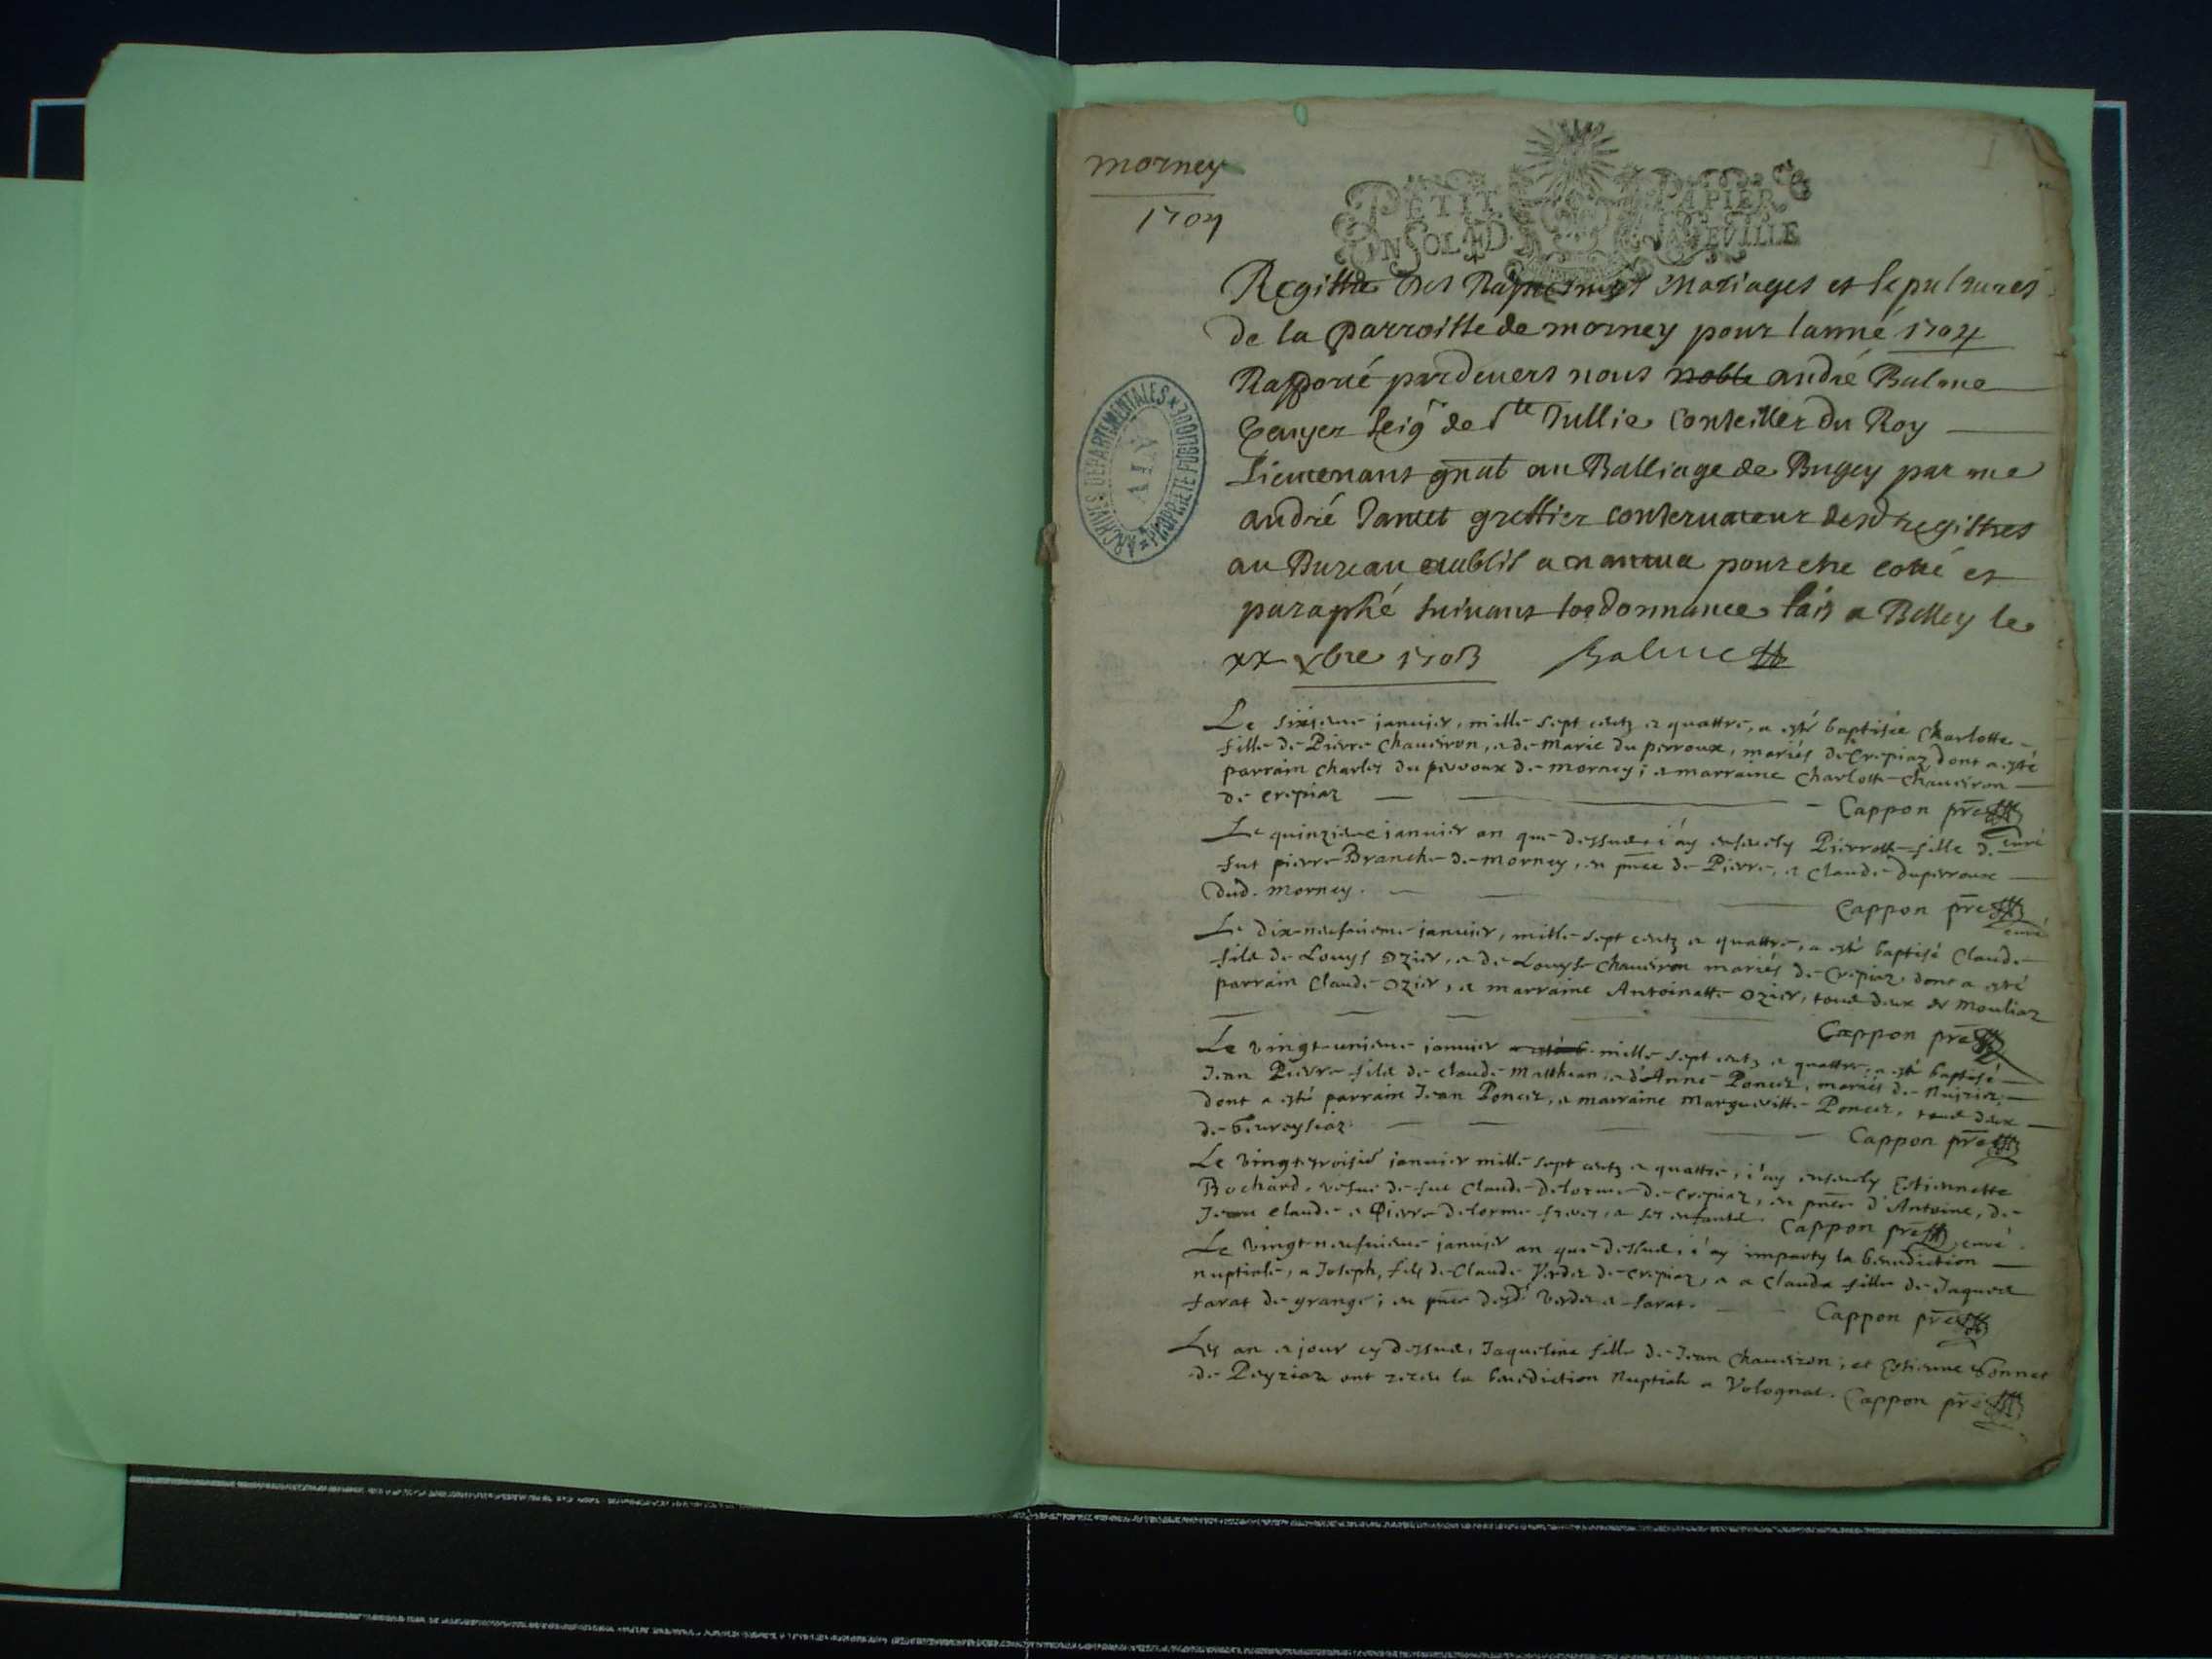 morney
1704
1
PETIT PAPIER
UN SOL 4D. LA FEVILLE
ARCHIVES DEPARTEMENTALES * PROPRIETE PUBLIQUE *
AIN
Regittre des Baptesmes Mariages et sepultures
de la parroisse de morney pour lanné 1704
Rapporté pardevers nous noble andré Balme
Ecuyer seigr de Ste Jullie Conseiller du Roy
Lieutenant gnal au Balliage de Bugey par me
andré Jantet greffier conservateur desd registres
au Bureau etablis a nantua pour etre cotté et
paraphé suivant lordonnance fait a Belley le
xx xbre 1703 Balme
Le sixieme janvier, mille sept centz et quattre, a esté baptisée Charlotte
fille de Pierre Chaveiron, et de Marie du perroux, mariés de Crepiaz dont a esté
parrain charles du perroux de morney; et marraine Charlotte Chaveiron
de crepiaz Cappon pre
curé
Le quinzieme janvier an que dessus, i'ay ensevely Pierrotte fille de
fut pierre Branche de morney, en pnce de Pierre, et Claude duperroux
dud. morney. Cappon pre
curé
Le dix-neufvieme janvier, mille sept centz et quattre, a esté baptisé Claude
filz de Louys Ozier, et de Louyse Chaveiron mariés de Crepiaz, dont a esté
parrain Claude Ozier, et marraine Antoinatte Ozier, tous deux de Mouliaz
Cappon pre
Le vingt-unieme janvier mille sept centz et quattre, a esté baptisé
Jean Pierre filz de claude Matthieu, et d'Anne Poncet, mariés de
dont a esté parrain Jean Poncet, et marraine Margueritte Poncet, tous deux
de beureysiaz. Cappon pre
Le vingt-troisie janvier mille sept centz et quattre, i'ay ensevely Estiennette
Bochard, vefue de fut Claude Delorme de Crepiaz, en pnce d'Antoine, de
Jean Claude et Pierre Delorme freres, et ses enfants. Cappon pre curé.
Le vingt-neufvieme janvier an que dessus, i'ay imparty la benediction
nuptiale, a Joseph, fils de Claude Verdet de crepiaz, et a Clauda fille de Jaques
farat de grange; en pnce desd. Verdet et farat. Cappon pre
Les an et jour cy dessus, Jaqueline fille de Jean Chaveiron, et Estienne bonnet
de Peyriaz ont receu la benediction Nuptiale a Volognat. Cappon pre